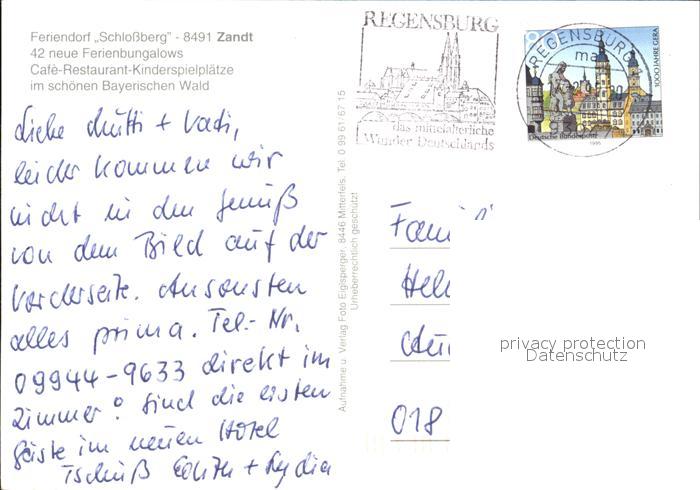 Feriendorf „Schloßberg" - 8491 Zandt
42 neue Ferienbungalows
Cafè-Restaurant-Kinderspielplätze
im schönen Bayerischen Wald
Liebe Mutti + Vati,
leider kommen wir
nicht in den Genuß
von dem Bild auf der
Vorderseite. Ansonsten
alles prima. Tel.-Nr.
09944-9633 direkt im
Zimmer! Sind die ersten
Gäste im neuen Hotel
Tschüß Edith + Lydia
Aufnahme u. Verlag Foto Eiglsperger, 8446 Mitterfels, Tel. 0 99 61/67 15
Urheberrechtlich geschützt!
REGENSBURG
das mittelalterliche
Wunder Deutschlands
REGENSBURG
ma
1000 JAHRE GERA
Deutsche Bundespost
1995
Fami
Hel
018
privacy protection
Datenschutz